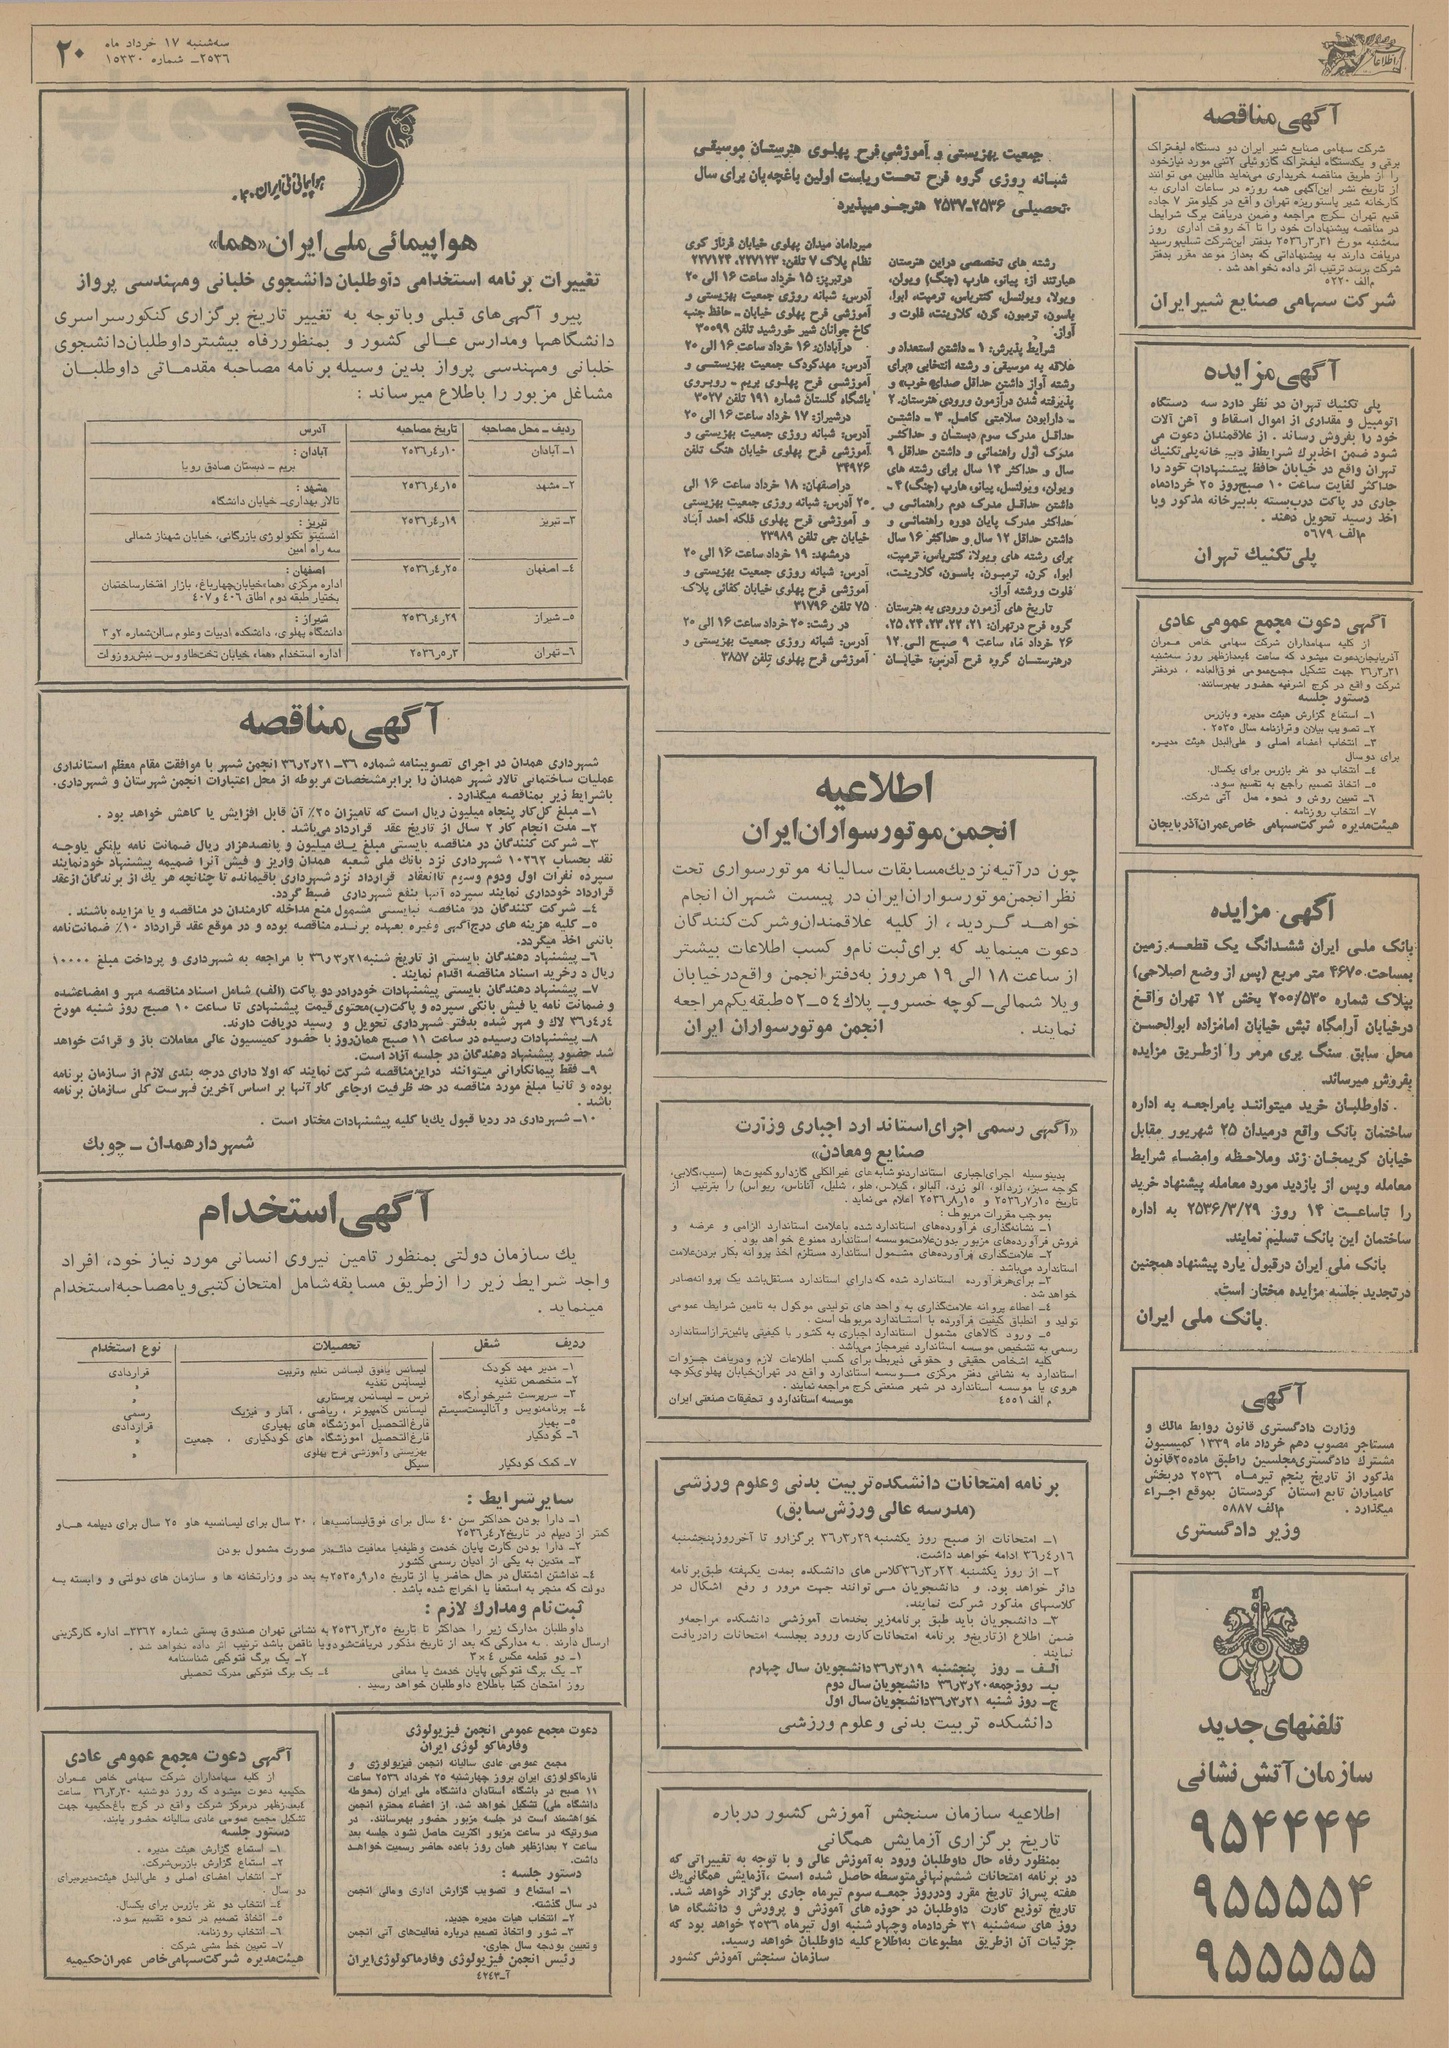 سه‌شنبه ۱۷ خرداد ماه
۲۵۳۶ـ شماره ۱۵۳۳۰
۲۰
اطلاعات
آگهی مناقصه
شرکت سهامی صنایع شیر ایران دو دستگاه لیفتراک
برقی و یکدستگاه لیفتراک گازوئیلی ۲تنی مورد نیازخود
را از طریق مناقصه خریداری می‌نماید طالبین می توانند
از تاریخ نشر این‌آگهی همه روزه در ساعات اداری به
کارخانه شیر پاستوریزه تهران واقع در کیلومتر ۷ جاده
قدیم تهران ـکرج مراجعه وضمن دریافت برگ شرایط
در مناقصه پیشنهادات خود را تا آخر وقت اداری روز
سه‌شنبه مورخ ۲۵۳۶/۳/۳۱ بدفتر این‌شرکت تسلیم‌ورسید
دریافت دارند به پیشنهاداتی که بعداز موعد مقرر بدفتر
شرکت برسد ترتیب اثر داده نخواهد شد .
م‌الف ۵۲۲۰
شرکت سهامی صنایع شیر ایران
آگهی مزایده
پلی تکنیک تهران در نظر دارد سه دستگاه
اتومبیل و مقداری از اموال اسقاط و آهن آلات
خود را بفروش رساند . از علاقمندان دعوت می
شود ضمن اخذبرك شرایط‌از دبیر خانه‌پلی‌تکنیك
تهران واقع در خیابان حافظ پیشنهادات خود را
حداکثر لغایت ساعت ۱۰ صبح‌روز ۲۵ خردادماه
جاری در پاکت دربسته بدبیرخانه مذکور وبا
اخذ رسید تحویل دهند .
م‌الف ۵۶۷۹
پلی تکنیك تهران
آگهی دعوت مجمع عمومی عادی
از کلیه سهامداران شرکت سهامی خاص عمران
آذربایجان‌دعوت میشود که ساعت ۴بعدازظهر روز سه‌شنبه
۳۶/۳/۳۱ جهت تشکیل مجمع‌عمومی فوق‌العاده ، دردفتر
شرکت واقع در کرج اشرفیه حضور بهم‌رسانند.
دستور جلسه
۱ـ استماع گزارش هیئت مدیره و بازرس
۲ـ تصویب بیلان و ترازنامه سال ۲۵۳۵ .
۳ـ انتخاب اعضاء اصلی و علی‌البدل هیئت مدیره
برای دو سال
۴ـ انتخاب دو نفر بازرس برای یکسال.
۵ـ اتخاذ تصمیم راجع به تقسیم سود.
۶ـ تعیین روش و نحوه عمل آتی شرکت.
۷ـ انتخاب روزنامه .
هیئت‌مدیره شرکت‌سهامی خاص‌عمران‌آذربایجان
آگهی مزایده
بانک ملی ایران ششدانگ یک قطعه زمین
بمساحت ۴۶۷۰ متر مربع (پس از وضع اصلاحی)
بپلاک شماره ۲۰۰/۵۳۰ بخش ۱۲ تهران واقع
درخیابان آرامگاه نبش خیابان امامزاده ابوالحسن
محل سابق سنگ بری مرمر را ازطریق مزایده
بفروش میرساند.
داوطلبان خرید میتوانند بامراجعه به اداره
ساختمان بانک واقع درمیدان ۲۵ شهریور مقابل
خیابان کریمخان زند وملاحظه وامضاء شرایط
معامله وپس از بازدید مورد معامله پیشنهاد خرید
را تاساعت ۱۴ روز ۲۵۳۶/۳/۲۹ به اداره
ساختمان این بانک تسلیم نمایند.
بانک ملی ایران درقبول یارد پیشنهاد همچنین
درتجدید جلسه مزایده مختار است.
بانک ملی ایران
آگهی
وزارت دادگستری قانون روابط مالك و
مستاجر مصوب دهم خرداد ماه ۱۳۳۹ کمیسیون
مشترك دادگستری‌مجلسین راطبق ماده۲۵قانون
مذکور از تاریخ پنجم تیرماه ۲۵۳۶ دربخش
کامیاران تابع استان کردستان بموقع اجراء
میگذارد . م‌الف ۵۸۸۷
وزیر دادگستری
تلفنهای جدید
سازمان آتش نشانی
۹۵۴۴۴۴
۹۵۵۵۵۴
۹۵۵۵۵۵
جمعیت بهزیستی و آموزشی‌فرح پهلوی هنرستان موسیقی
شبانه روزی گروه فرح تحت ریاست اولین باغچه‌بان برای سال
تحصیلی ۲۵۳۶ـ۲۵۳۷ هنرجو میپذیرد
رشته های تخصصی دراین هنرستان
عبارتند از: پیانو، هارپ (چنگ) ویولن،
ویولا، ویولنسل، کنترباس، ترمپت، ابوا،
باسون، ترمبون، کرن، کلارینت، فلوت و
آواز.
شرایط پذیرش: ۱ ـ داشتن استعداد و
علاقه به موسیقی و رشته انتخابی «برای
رشته آواز داشتن حداقل صدای خوب» و
پذیرفته شدن درآزمون ورودی هنرستان. ۲
ـ دارابودن سلامتی کامل. ۳ ـ داشتن
حداقل مدرک سوم دبستان و حداکثر
مدرک اول راهنمائی و داشتن حداقل ۹
سال و حداکثر ۱۴ سال برای رشته های
ویولن، ویولنسل، پیانو، هارپ (چنگ) ۴ـ
داشتن حداقل مدرک دوم راهنمائی و
حداکثر مدرک پایان دوره راهنمائی و
داشتن حداقل ۱۲ سال و حداکثر ۱۶ سال
برای رشته های ویولا، کنترباس، ترمپت،
ابوا، کرن، ترمبون، باسون، کلارینت،
فلوت ورشته آواز.
تاریخ های آزمون ورودی به هنرستان
گروه فرح درتهران: ۲۱، ۲۲، ۲۳، ۲۴، ۲۵،
۲۶ خرداد ماه ساعت ۹ صبح الی ۱۲
درهنرستان گروه فرح آدرس: خیابان
میرداماد میدان پهلوی خیابان فرناز کری
نظام پلاک ۷ تلفن: ۲۲۷۱۲۳، ۲۲۷۱۲۴
درتبریز: ۱۵ خرداد ساعت ۱۶ الی ۲۰
آدرس: شبانه روزی جمعیت بهزیستی و
آموزشی فرح پهلوی خیابان ـ حافظ جنب
کاخ جوانان شیر خورشید تلفن ۳۰۰۹۹
درآبادان: ۱۶ خرداد ساعت ۱۶ الی ۲۰
آدرس: مهدکودک جمعیت بهزیستی و
آموزشی فرح پهلوی بریم ـ روبروی
باشگاه گلستان شماره ۱۹۱ تلفن ۳۰۲۷
درشیراز: ۱۷ خرداد ساعت ۱۶ الی ۲۰
آدرس: شبانه روزی جمعیت بهزیستی و
آموزشی فرح پهلوی خیابان هنگ تلفن
۳۴۹۲۶
دراصفهان: ۱۸ خرداد ساعت ۱۶ الی
۲۰ آدرس: شبانه روزی جمعیت بهزیستی
و آموزشی فرح پهلوی فلکه احمد آباد
خیابان جی تلفن ۲۳۹۸۹
درمشهد: ۱۹ خرداد ساعت ۱۶ الی ۲۰
آدرس: شبانه روزی جمعیت بهزیستی و
آموزشی فرح پهلوی خیابان کفائی پلاک
۷۵ تلفن ۳۱۷۹۶
در رشت: ۲۰ خرداد ساعت ۱۶ الی ۲۰
آدرس: شبانه روزی جمعیت بهزیستی و
آموزشی فرح پهلوی تلفن ۳۸۵۷
اطلاعیه
انجمن موتورسواران ایران
چون درآتیه‌نزدیك‌مسابقات سالیانه موتورسواری تحت
نظرانجمن‌موتورسواران‌ایران در پیست شهران انجام
خواهد گردید ، از کلیه علاقمندان‌وشرکت‌کنندگان
دعوت مینماید که برای‌ثبت نام‌و کسب اطلاعات بیشتر
از ساعت ۱۸ الی ۱۹ هرروز به‌دفترانجمن واقع‌درخیابان
ویلا شمالی ـ کوچه خسرو ـ پلاك ۵۴ ـ ۵۲طبقه‌یکم‌مراجعه
نمایند .
انجمن موتورسواران ایران
«آگهی رسمی اجرای‌استاندارد اجباری وزارت
صنایع ومعادن»
بدینوسیله اجرای‌اجباری استانداردنوشابه‌های غیرالکلی گازداروکمپوت‌ها (سیب،گلابی،
گوجه سبز، زردآلو، آلو زرد، آلبالو، گیلاس، هلو، شلیل، آناناس، ریواس) را بترتیب از
تاریخ ۲۵۳۶/۷/۱۵ و ۲۵۳۶/۸/۱۵ اعلام می‌نماید .
بموجب مقررات مربوط :
۱ـ نشانه‌گذاری فرآورده‌های استاندارد شده باعلامت استاندارد الزامی و عرضه و
فروش فرآورده‌های مزبور بدون‌علامت‌موسسه استاندارد ممنوع خواهد بود .
۲ـ علامت‌گذاری فرآورده‌های مشمول استاندارد مستلزم اخذ پروانه بکار بردن‌علامت
استاندارد می‌باشد .
۳ـ برای‌هرفرآورده استاندارد شده که‌دارای استاندارد مستقل‌باشد یک پروانه‌صادر
خواهد شد .
۴ـ اعطاء پروانه علامت‌گذاری به واحد های تولیدی موکول به تامین شرایط عمومی
تولید و انطباق کیفیت فرآورده با استاندارد مربوط است .
۵ـ ورود کالاهای مشمول استاندارد اجباری به کشور با کیفیتی پائین‌ترازاستاندارد
رسمی به تشخیص موسسه استاندارد غیرمجاز می‌باشد .
کلیه اشخاص حقیقی و حقوقی ذیربط برای کسب اطلاعات لازم ودریافت جزوات
استاندارد به نشانی دفتر مرکزی موسسه استاندارد واقع در تهران‌خیابان پهلوی‌کوچه
هروی یا موسسه استاندارد در شهر صنعتی کرج مراجعه نمایند .
م الف ۴۵۵۱
موسسه استاندارد و تحقیقات صنعتی ایران
برنامه امتحانات دانشکده‌تربیت بدنی وعلوم ورزشی
(مدرسه عالی ورزش سابق)
۱ـ امتحانات از صبح روز یکشنبه ۳۶/۳/۲۹ برگزارو تا آخرروزپنجشنبه
۳۶/۴/۱۶ ادامه خواهد داشت.
۲ـ از روز یکشنبه ۳۶/۳/۲۲کلاس های دانشکده بمدت یکهفته طبق‌برنامه
دائر خواهد بود. و دانشجویان می‌توانند جهت مرور و رفع اشکال در
کلاسهای مذکور شرکت نمایند.
۳ـ دانشجویان باید طبق برنامه‌زیر بخدمات آموزشی دانشکده مراجعه‌و
ضمن اطلاع ازتاریخ‌و برنامه امتحانات‌کارت ورود بجلسه امتحانات رادریافت
نمایند
الف ـ روز پنجشنبه ۳۶/۳/۱۹ دانشجویان سال چهارم
ب ـ روزجمعه ۳۶/۳/۲۰ دانشجویان سال دوم
ج ـ روز شنبه ۳۶/۳/۲۱دانشجویان سال اول
دانشکده تربیت بدنی وعلوم ورزشی
اطلاعیه سازمان سنجش آموزش کشور درباره
تاریخ برگزاری آزمایش همگانی
بمنظور رفاه حال داوطلبان ورود به‌آموزش عالی و با توجه به تغییراتی که
در برنامه امتحانات ششم‌نهائی‌متوسطه حاصل شده است ،آزمایش همگانی‌یك
هفته پس‌از تاریخ مقرر ودرروز جمعه سوم تیرماه جاری برگزار خواهد شد.
تاریخ توزیع کارت داوطلبان در حوزه های آموزش و پرورش و دانشگاه ها
روز های سه‌شنبه ۳۱ خردادماه وچهارشنبه اول تیرماه ۲۵۳۶ خواهد بود که
جزئیات آن ازطریق مطبوعات به‌اطلاع کلیه داوطلبان خواهد رسید.
سازمان سنجش آموزش کشور
هواپیمائی ملی ایران.هما.
هواپیمائی ملی ایران«هما»
تغییرات برنامه استخدامی داوطلبان دانشجوی خلبانی ومهندسی پرواز
پیرو آگهی‌های قبلی وباتوجه به تغییر تاریخ برگزاری کنکورسراسری
دانشگاهها ومدارس عالی کشور و بمنظوررفاه بیشترداوطلبان‌دانشجوی
خلبانی ومهندسی پرواز بدین وسیله برنامه مصاحبه مقدماتی داوطلبان
مشاغل مزبور را باطلاع میرساند :
ردیف ـ محل مصاحبه تاریخ مصاحبه آدرس
۱ـ آبادان ۲۵۳۶/۴/۱۰ آبادان :
بریم ـ دبستان صادق رویا
۲ـ مشهد ۲۵۳۶/۴/۱۵ مشهد :
تالار بهداری ـ خیابان دانشگاه
۳ـ تبریز ۲۵۳۶/۴/۱۹ تبریز :
انستیتو تکنولوژی بازرگانی، خیابان شهناز شمالی
سه راه امین
۴ـ اصفهان ۲۵۳۶/۴/۲۵ اصفهان :
اداره مرکزی «هما»خیابان‌چهارباغ، بازار افتخارساختمان
بختیار طبقه دوم اطاق ۴۰۶ و ۴۰۷
۵ـ شیراز ۲۵۳۶/۴/۲۹ شیراز :
دانشگاه پهلوی، دانشکده ادبیات وعلوم سالن‌شماره ۲و۳
۶ـ تهران ۲۵۳۶/۵/۳ اداره استخدام «هما» خیابان تخت‌طاووس ـ نبش‌روزولت
آگهی مناقصه
شهرداری همدان در اجرای تصویبنامه شماره ۳۶ـ۳۶/۲/۲۱ انجمن شهر با موافقت مقام معظم استانداری
عملیات ساختمانی تالار شهر همدان را برابرمشخصات مربوطه از محل اعتبارات انجمن شهرستان و شهرداری.
باشرایط زیر بمناقصه میگذارد .
۱ـ مبلغ کل‌کار پنجاه میلیون ریال است که تامیزان ۲۵٪ آن قابل افزایش یا کاهش خواهد بود .
۲ـ مدت انجام کار ۲ سال از تاریخ عقد قرارداد می‌باشد .
۳ـ شرکت کنندگان در مناقصه بایستی مبلغ یك میلیون و پانصدهزار ریال ضمانت نامه بانکی یاوجه
نقد بحساب ۱۰۲۶۲ شهرداری نزد بانك ملی شعبه همدان واریز و فیش آنرا ضمیمه پیشنهاد خودنمایند
سپرده نفرات اول ودوم وسوم تاانعقاد قرارداد نزد شهرداری باقیمانده تا چنانچه هر یك از برندگان ازعقد
قرارداد خودداری نمایند سپرده آنها بنفع شهرداری ضبط گردد.
۴ـ شرکت کنندگان در مناقصه نبایستی مشمول منع مداخله کارمندان در مناقصه و یا مزایده باشند .
۵ـ کلیه هزینه های درج‌آگهی وغیره بعهده برنده مناقصه بوده و در موقع عقد قرارداد ۱۰٪ ضمانت‌نامه
بانکی اخذ میگردد.
۶ـ پیشنهاد دهندگان بایستی از تاریخ شنبه۳۶/۳/۲۱ با مراجعه به شهرداری و پرداخت مبلغ ۱۰۰۰۰
ریال درخرید اسناد مناقصه اقدام نمایند .
۷ـ پیشنهاد دهندگان بایستی پیشنهادات خودرادر دو پاکت (الف) شامل اسناد مناقصه مهر و امضاءشده
و ضمانت نامه یا فیش بانکی سپرده و پاکت(ب)محتوی قیمت پیشنهادی تا ساعت ۱۰ صبح روز شنبه مورخ
۳۶/۴/۴ لاك و مهر شده بدفتر شهرداری تحویل و رسید دریافت دارند.
۸ـ پیشنهادات رسیده در ساعت ۱۱ صبح همان‌روز با حضور کمیسیون عالی معاملات باز و قرائت خواهد
شد حضور پیشنهاد دهندگان در جلسه آزاد است.
۹ـ فقط پیمانکارانی میتوانند دراین‌مناقصه شرکت نمایند که اولا دارای درجه بندی لازم از سازمان برنامه
بوده و ثانیا مبلغ مورد مناقصه در حد ظرفیت ارجاعی کار آنها بر اساس آخرین فهرست کلی سازمان برنامه
باشد .
۱۰ـ شهرداری در ردیا قبول یك‌یا کلیه پیشنهادات مختار است .
شهردارهمدان ـ چوبك
آگهی استخدام
یك سازمان دولتی بمنظور تامین نیروی انسانی مورد نیاز خود، افراد
واجد شرایط زیر را ازطریق مسابقه‌شامل امتحان‌کتبی‌ویامصاحبه‌استخدام
مینماید .
ردیف شغل تحصیلات نوع استخدام
۱ـ مدیر مهد کودک لیسانس یافوق لیسانس تعلیم وتربیت قراردادی
۲ـ متخصص تغذیه لیسانس تغذیه »
۳ـ سرپرست شیرخوارگاه نرس ـ لیسانس پرستاری »
۴ـ برنامه‌نویس و آنالیست‌سیستم لیسانس کامپیوتر ، ریاضی ، آمار و فیزیک رسمی
۵ـ بهیار فارغ‌التحصیل آموزشگاه های بهیاری قراردادی
۶ـ کودکیار فارغ‌التحصیل آموزشگاه های کودکیاری ، جمعیت »
بهزیستی وآموزشی فرح پهلوی
۷ـ کمک کودکیار سیکل »
سایر شرایط :
۱ـ دارا بودن حداکثر سن ۴۰ سال برای فوق‌لیسانسیه‌ها ، ۳۰ سال برای لیسانسیه هاو ۲۵ سال برای دیپلمه هاو
کمتر از دیپلم در تاریخ۲۵۳۶/۴/۲
۲ـ دارا بودن کارت پایان خدمت وظیفه‌یا معافیت دائم‌در صورت مشمول بودن
۳ـ متدین به یکی از ادیان رسمی کشور
۴ـ نداشتن اشتغال در حال حاضر یا از تاریخ ۲۵۳۵/۹/۱۵به بعد در وزارتخانه ها و سازمان های دولتی و وابسته به
دولت که منجر به استعفا یا اخراج شده باشد .
ثبت نام ومدارك لازم :
داوطلبان مدارک زیر را حداکثر تا تاریخ ۲۵۳۶/۳/۲۵ به نشانی تهران صندوق پستی شماره ۳۳۶۲ـ اداره کارگزینی
ارسال دارند . به مدارکی که بعد از تاریخ مذکور دریافت‌شودویا ناقص باشد ترتیب اثر داده نخواهد شد .
۱ـ دو قطعه عکس ۴ × ۳ ۲ـ یک برگ فتوکپی شناسنامه
۳ـ یک برگ فتوکپی پایان خدمت یا معافی ۴ـ یک برگ فتوکپی مدرک تحصیلی
روز امتحان کتبا باطلاع داوطلبان خواهد رسید .
دعوت مجمع عمومی انجمن فیزیولوژی
وفارماکولوژی ایران
مجمع عمومی عادی سالیانه انجمن فیزیولوژی و
فارماکولوژی ایران بروز چهارشنبه ۲۵ خرداد ۲۵۳۶ ساعت
۱۱ صبح در باشگاه استادان دانشگاه ملی ایران (محوطه
دانشگاه ملی) تشکیل خواهد شد. از اعضاء محترم انجمن
خواهشمند است در جلسه مزبور حضور بهمرسانند. در
صورتیکه در ساعت مزبور اکثریت حاصل نشود جلسه بعد
ساعت ۲ بعدازظهر همان روز باعده حاضر رسمیت خواهد
داشت.
دستور جلسه :
۱ـ استماع و تصویب گزارش اداری ومالی انجمن
در سال گذشته.
۲ـ انتخاب هیات مدیره جدید.
۳ـ شور واتخاذ تصمیم درباره فعالیت‌های آتی انجمن
وتعیین بودجه سال جاری.
رئیس انجمن فیزیولوژی وفارماکولوژی‌ایران
آـ۴۲۴۳
آگهی دعوت مجمع عمومی عادی
از کلیه سهامداران شرکت سهامی خاص عمران
حکیمیه دعوت میشود که روز دوشنبه ۳۶/۳/۳۰ ساعت
۴بعدازظهر درمرکز شرکت واقع در کرج باغ‌حکیمیه جهت
تشکیل مجمع عمومی عادی سالیانه حضور یابند.
دستور جلسه
۱ـ استماع گزارش هیئت مدیره .
۲ـ استماع گزارش بازرس‌شرکت.
۳ـ انتخاب اعضای اصلی و علی‌البدل هیئت‌مدیره‌برای
دو سال .
۴ـ انتخاب دو نفر بازرس برای یکسال.
۵ـ اتخاذ تصمیم در نحوه تقسیم سود.
۶ـ انتخاب روزنامه.
۷ـ تعیین خط مشی شرکت .
هیئت‌مدیره شرکت‌سهامی‌خاص عمران‌حکیمیه